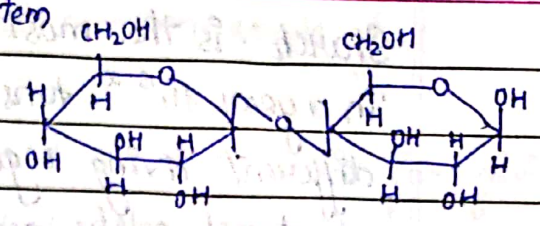 tem
CH₂OH CH₂OH
O O
H H H OH
O
OH OH H OH H H
H OH H OH